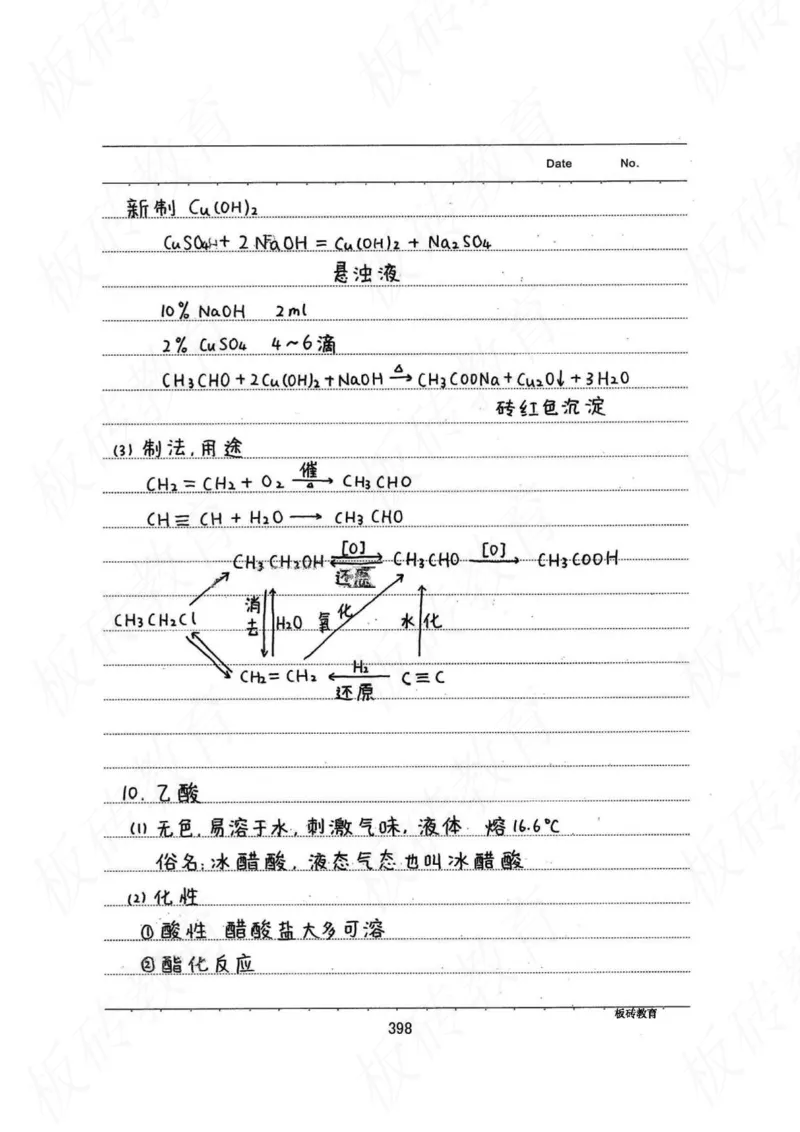 Date No.
新制 Cu(OH)₂
CuSO₄ + 2NaOH = Cu(OH)₂ + Na₂SO₄
悬浊液
10% NaOH 2ml
2% CuSO₄ 4~6滴
CH₃CHO + 2Cu(OH)₂ + NaOH —△→ CH₃COONa + Cu₂O↓ + 3H₂O
砖红色沉淀
(3) 制法,用途
CH₂ = CH₂ + O₂ —催/△→ CH₃CHO
CH ≡ CH + H₂O → CH₃CHO
CH₃CH₂OH [O] 还原 CH₃CHO [O] → CH₃COOH
CH₃CH₂Cl 消去 H₂O 氧化 水化
CH₂ = CH₂ ← H₂ 还原 C ≡ C
10. 乙酸
(1) 无色,易溶于水,刺激气味,液体 熔16.6℃
俗名:冰醋酸,液态气态也叫冰醋酸
(2) 化性
① 酸性 醋酸盐大多可溶
② 酯化反应
板砖教育
398